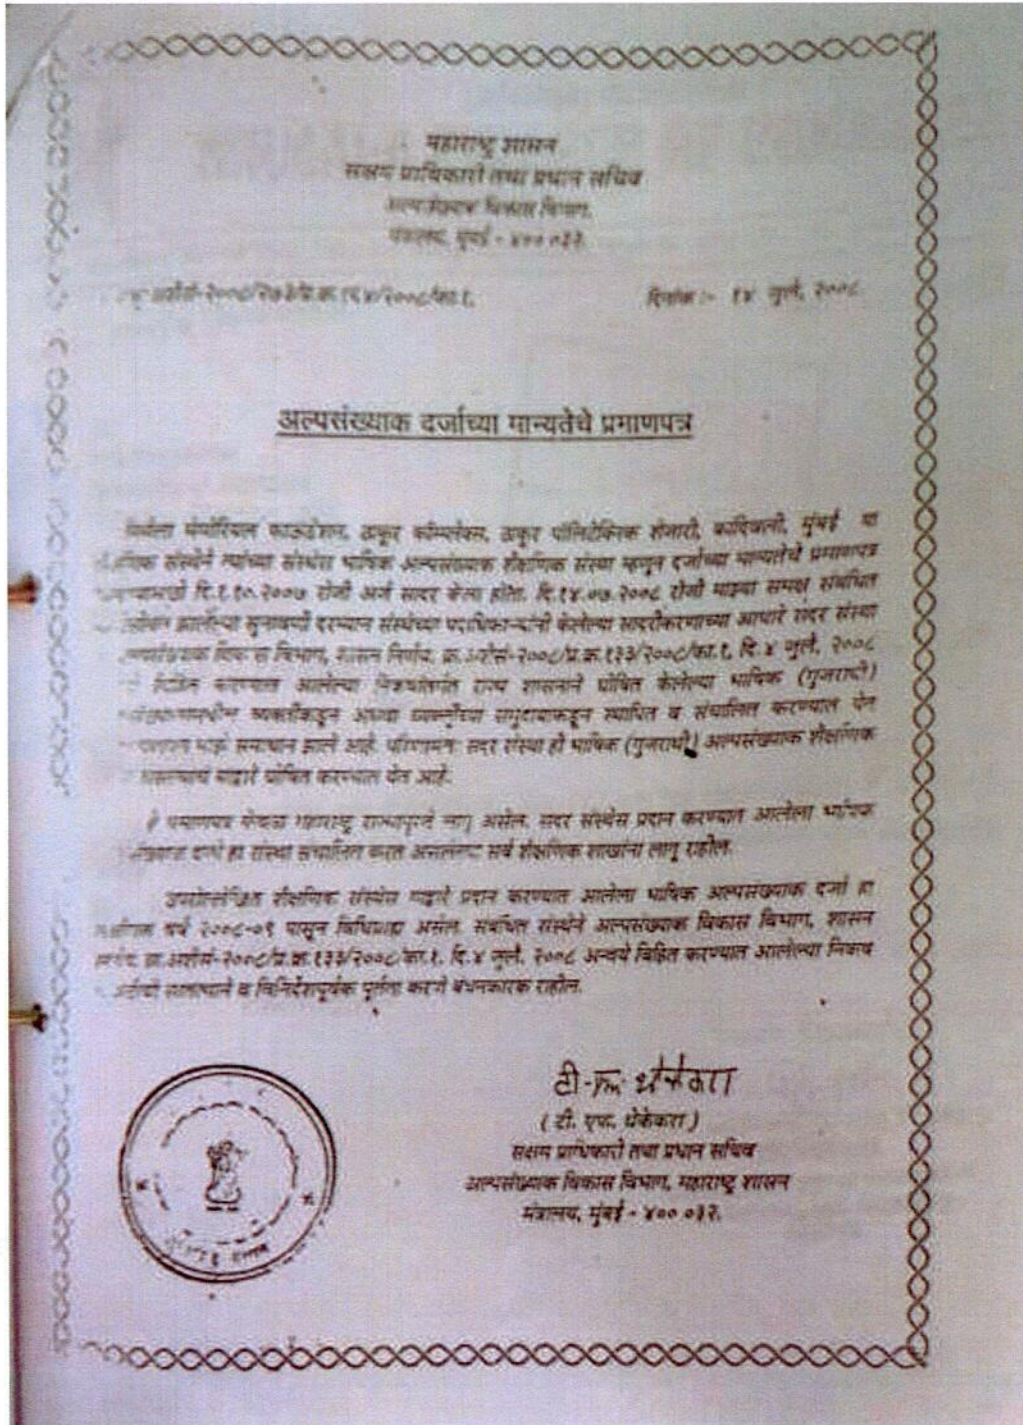 महाराष्ट्र शासन
सक्षम प्राधिकारी तथा प्रधान सचिव
अल्पसंख्याक विकास विभाग,
मंत्रालय, मुंबई - ४०० ०३२.
दिनांक :- १४ जुलै, २००८
अल्पसंख्याक दर्जाच्या मान्यतेचे प्रमाणपत्र
मेमोरियल फाऊंडेशन, ठाकूर कॉम्प्लेक्स, ठाकूर पॉलिटेक्निक शेजारी, कांदिवली, मुंबई या
संस्थेने त्यांच्या संस्थेस भाषिक अल्पसंख्याक शैक्षणिक संस्था म्हणून दर्जाच्या मान्यतेचे प्रमाणपत्र
दि.१.१०.२००७ रोजी अर्ज सादर केला होता. दि.१४.०७.२००८ रोजी माझ्या समक्ष संबंधित
झालेल्या सुनावणी दरम्यान संस्थेच्या पदाधिकाऱ्यांनी केलेल्या सादरीकरणाच्या आधारे सदर संस्था
विभाग, शासन निर्णय, क्र.अशैसं-२००८/प्र.क्र.१३३/२००८/का.१, दि.४ जुलै, २००८
विहित करण्यात आलेल्या निकषांतर्गत राज्य शासनाने घोषित केलेल्या भाषिक (गुजराथी)
व्यक्तीकडून अथवा व्यक्तींच्या समुदायाकडून स्थापित व संचालित करण्यात येत
माझे समाधान झाले आहे. परिणामतः सदर संस्था ही भाषिक (गुजराथी) अल्पसंख्याक शैक्षणिक
याद्वारे घोषित करण्यात येत आहे.
हे प्रमाणपत्र केवळ महाराष्ट्र राज्यापुरते लागू असेल. सदर संस्थेस प्रदान करण्यात आलेला भाषिक
दर्जा हा संस्था संचालित करत असलेल्या सर्व शैक्षणिक शाखांना लागू राहील.
उपरोल्लेखित शैक्षणिक संस्थेस याद्वारे प्रदान करण्यात आलेला भाषिक अल्पसंख्याक दर्जा हा
वर्ष २००८-०९ पासून विधिग्राह्य असेल. संबंधित संस्थेने अल्पसंख्याक विकास विभाग, शासन
क्र.अशैसं-२००८/प्र.क्र.१३३/२००८/का.१, दि.४ जुलै, २००८ अन्वये विहित करण्यात आलेल्या निकष
व विनिर्देशपूर्वक पूर्तता करणे बंधनकारक राहील.
(टी. एफ. थेकेकरा)
सक्षम प्राधिकारी तथा प्रधान सचिव
अल्पसंख्याक विकास विभाग, महाराष्ट्र शासन
मंत्रालय, मुंबई - ४०० ०३२.